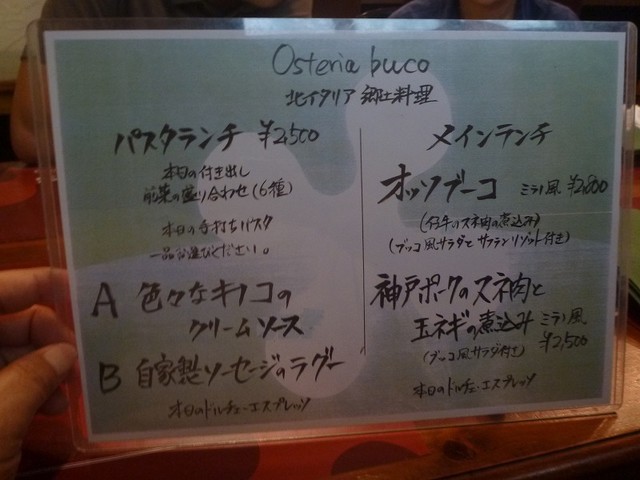 Osteria buco
北イタリア 郷土料理
パスタランチ ¥2,500
本日の付き出し
前菜の盛り合わせ(6種)
本日の手打ちパスタ
一品お選びください。
A 色々なキノコの
クリームソース
B 自家製ソーセージのラグー
本日のドルチェ・エスプレッソ
メインランチ
オッソブーコ ミラノ風 ¥2,800
(仔牛のスネ肉の煮込み)
(ブッコ風サラダとサフランリゾット付き)
神戸ポークのスネ肉と
玉ネギの煮込み ミラノ風
¥2,500
(ブッコ風サラダ付き)
本日のドルチェ・エスプレッソ